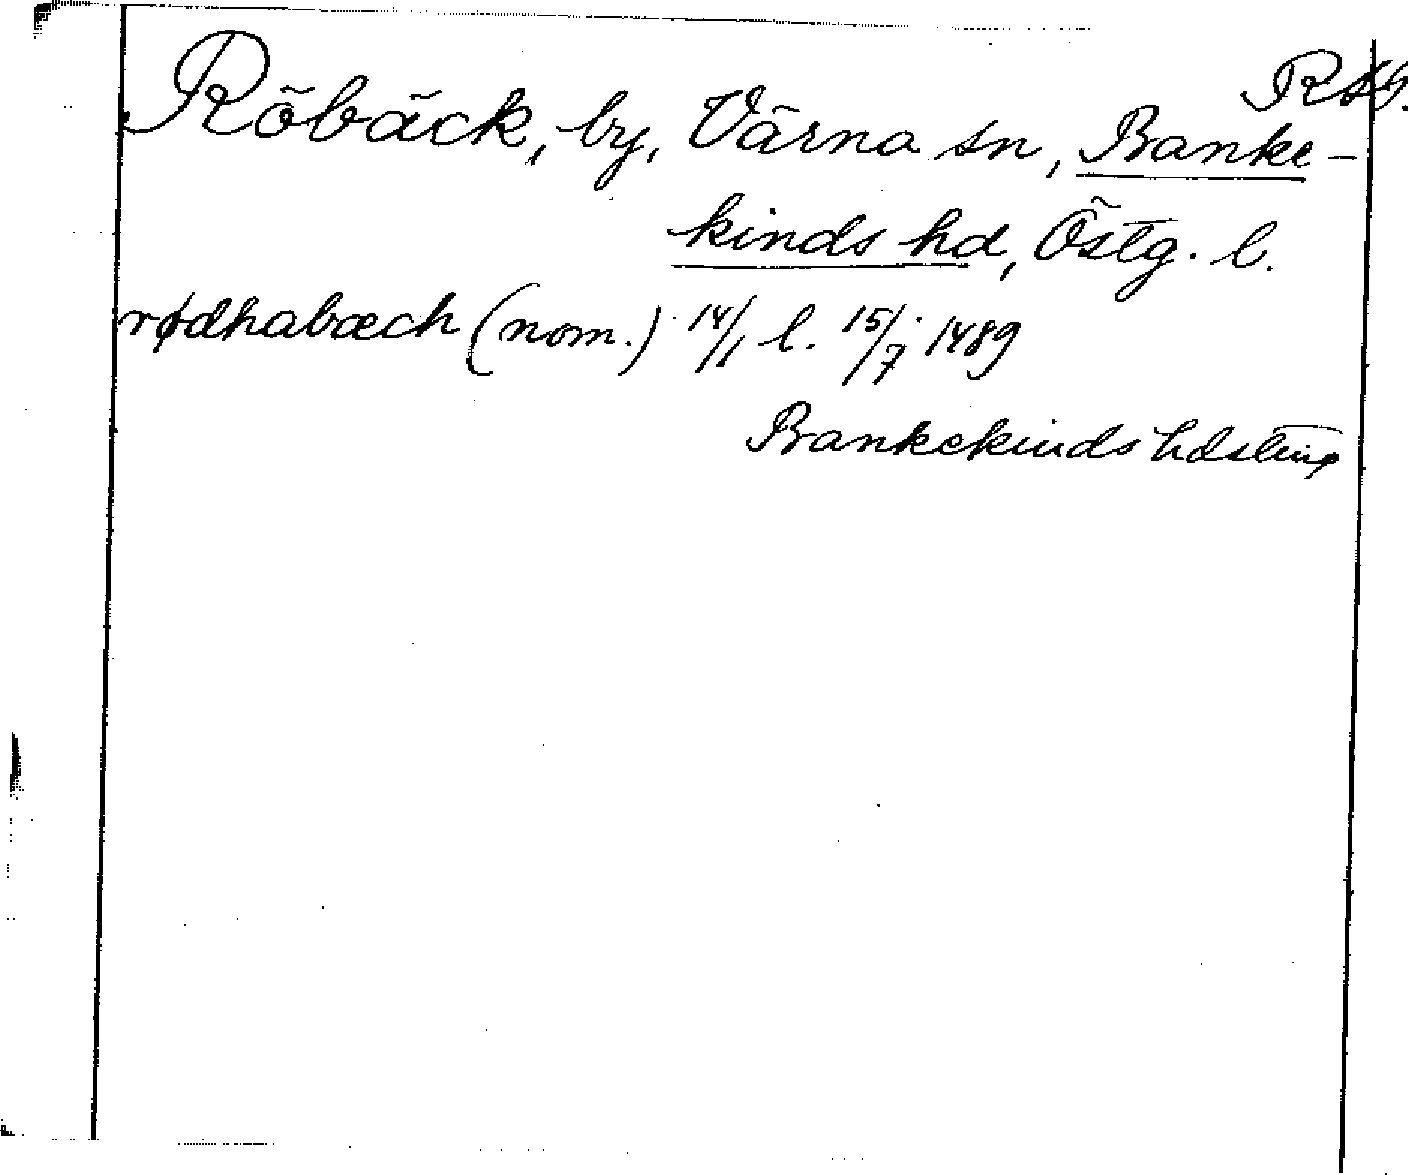 Röbäck, by, Värna sn, Banke-
kinds hd, Östg. l.
rødhabæch (nom.) 14/1 l. 15/7 1489
Bankekinds hdsting